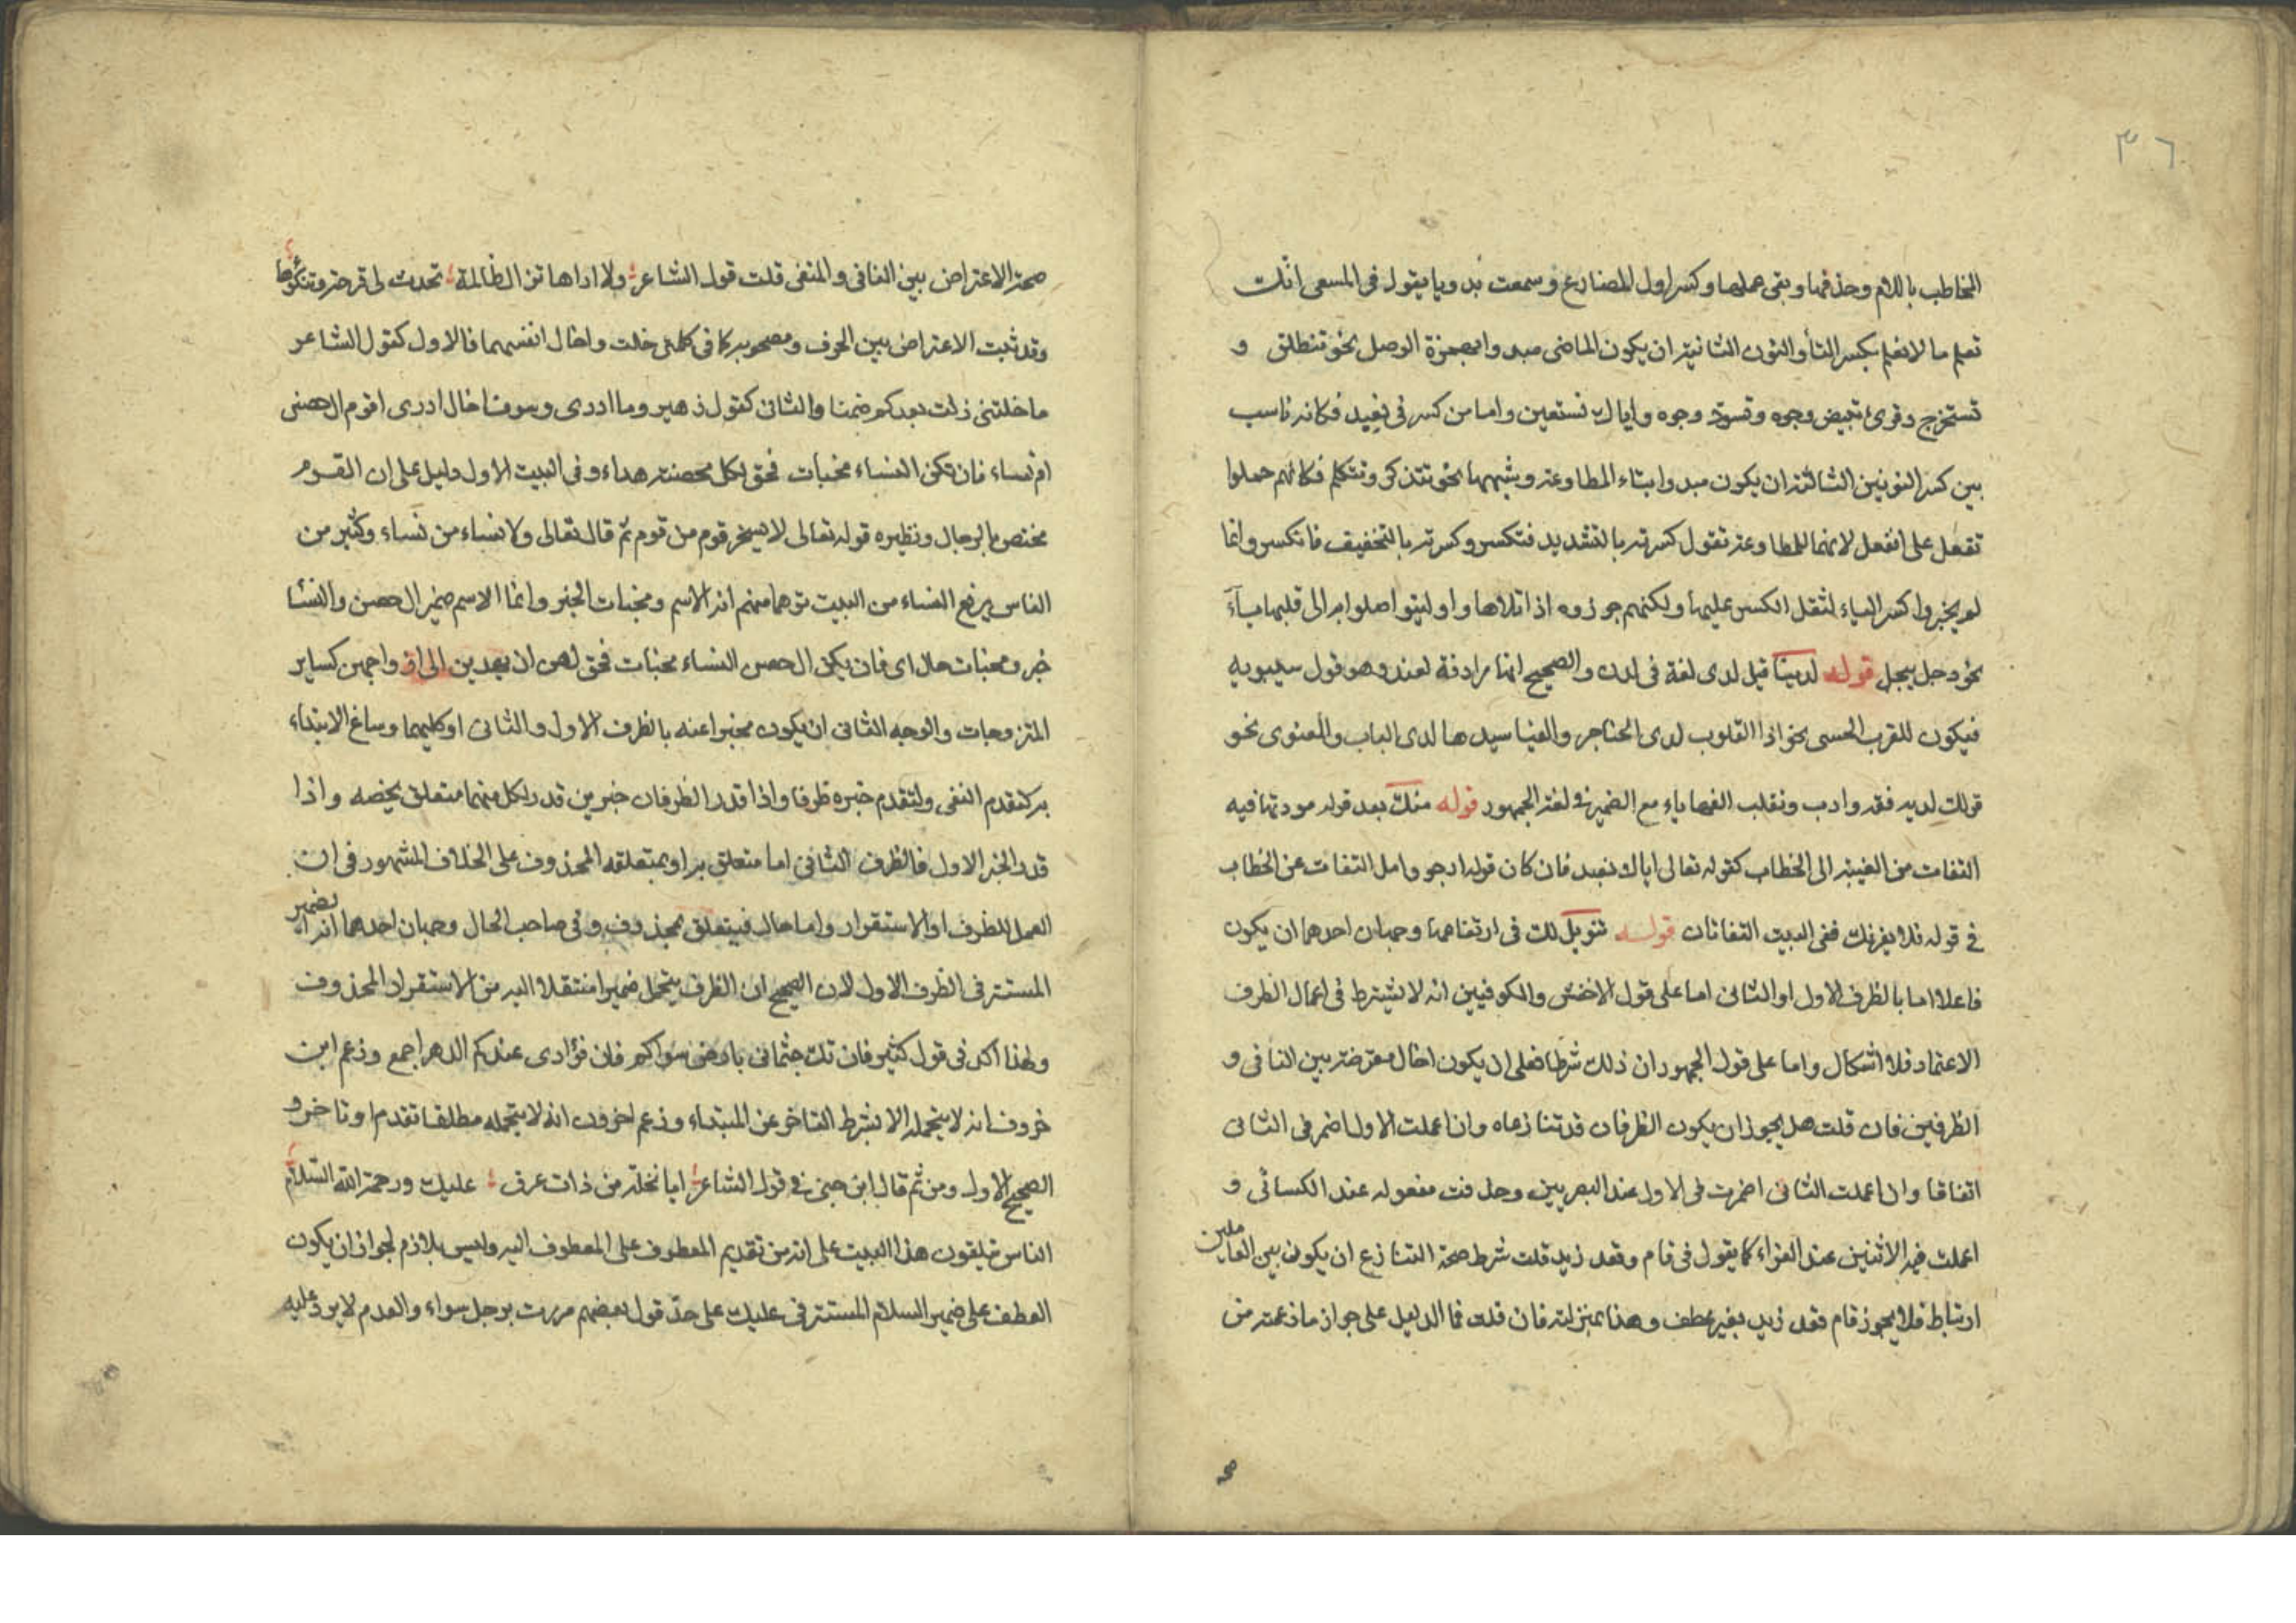 ٣٦
المخاطب باللام وحذفها وبقى عملها وكسر اول المضارع وسمعت بدويا يقول فى المسعى انك
تعلم ما لا نعلم بكسر التأ والنون الثانية ان يكون الماضى مبدوا بهمزة الوصل نحو تنطلق و
تستخرج وقرئ تبيض وجوه وتسود وجوه واياك نستعين واما من كسر فى نعبد فكانه ناسب
بين كسر النونين الثالثة ان يكون مبدوا بتاء المطاوعة وشبهها نحو تتذكر وتتكلم فكانهم حملوا
تفعل على انفعل لانهما للمطاوعة تقول كسرته بالتشديد فتكسر وكسرته بالتخفيف فانكسر وانما
لم يجيزوا كسر الياء لثقل الكسر عليها ولكنهم جوزوه اذا تلاها واو ليتواصلوا به الى قلبها ياء
نحو وجل ييجل قوله لدينا قيل لدى لغة فى لدن والصحيح انها مرادفة لعند وهو قول سيبويه
فيكون للقرب الحسى نحو اذا القلوب لدى الحناجر والفيا سيدها لدى الباب والمعنوى نحو
قولك لديه فقه وادب وتقلب الفها ياء مع الضمير فى لغة الجمهور قوله منك بعد قوله مودتها فيه
التفات من الغيبة الى الخطاب كقوله تعالى اياك نعبد فان كان قوله ارجو وامل التفات عن الخطاب
فى قوله فلا يغرنك ففى البيت التفاتان قوله تنويل لك فى ارتفاعها وجهان احدهما ان يكون
فاعلا اما بالظرف الاول او الثانى اما على قول الاخفش والكوفيين انه لا يشترط فى اعمال الظرف
الاعتماد فلا اشكال واما على قول الجمهور ان ذلك شرط فعلى ان يكون اخال معترضة بين النافى و
الظرفين فان قلت هل يجوز ان يكون الظرفان قد تنازعاه وان اعملت الاول اضمر فى الثانى
اتفاقا وان اعملت الثانى اضمرت فى الاول عند البصريين وحذفت مفعوله عند الكسائى و
اعملت فيه الاثنين عند الفراء كما يقول فى قام وقعد زيد قلت شرط صحة التنازع ان يكون بين العاملين
ارتباط فلا يجوز قام قعد زيد بغير عطف وهذا بمنزلته فان قلت فما الدليل على جواز ما زعمته من
صحة الاعتراض بين النافى والمنفى قلت قول الشاعر ولا اراها تزال ظالمة تحدث لى قرحة وتنكؤها
وقد ثبت الاعتراض بين الحرف ومصحوبه كما فى كلمتى خلت واخال انفسهما فالاول كقول الشاعر
ما خلتنى زلت بعدكم ضمنا والثانى كقول زهير وما ادرى وسوف اخال ادرى اقوم ال حصن
ام نساء فان تكن النساء مخبات فحق لكل محصنة هداء وفى البيت الاول دليل على ان القوم
مختص بالرجال ونظيره قوله تعالى لا يسخر قوم من قوم ثم قال تعالى ولا نساء من نساء وكثير من
الناس يرفع النساء من البيت توهما منهم انه الاسم ومخبات الخبر وانما الاسم ضمير ال حصن والنسا
خبر ومخبات حال اى فان يكن ال حصن النساء مخبات فحق لهن ان يهدين الى ازواجهن كساير
المتزوجات والوجه الثانى ان يكون مخبرا عنه بالظرف الاول والثانى او كليهما وساغ الابتداء
به كتقدم النفى ولتقدم خبره ظرفا واذا قدر الظرفان خبرين قدر لكل منهما متعلق يخصه واذا
قدر الخبر الاول فالظرف الثانى اما متعلق به او بمتعلقه المحذوف على الخلاف المشهور فى ان
العمل للظرف او الاستقرار واما حال فيتعلق بمحذوف وفى صاحب الحال وجهان احدهما انه الضمير
المستتر فى الظرف الاول لان الصحيح ان الظرف يتحمل ضميرا منتقلا اليه من الاستقرار المحذوف
ولهذا اكد فى قول كثير فان تك جثمانى بارض سواكم فان فؤادى عندكم الدهر اجمع وزعم ابن
خروف انه لا يتحمله الا بشرط التاخر عن المبتداء وزعم اخرون انه لا يتحمله مطلقا تقدم او تاخر و
الصحيح الاول ومن ثم قال ابن جنى فى قول الشاعر ايا نخلة من ذات عرق عليك ورحمة الله السلام
الناس يتلقون هذا البيت على انه من تقديم المعطوف على المعطوف اليه وليس بلازم لجواز ان يكون
العطف على ضمير السلام المستتر فى عليك على حد قول بعضهم مررت برجل سواء والعدم لا يرد عليه